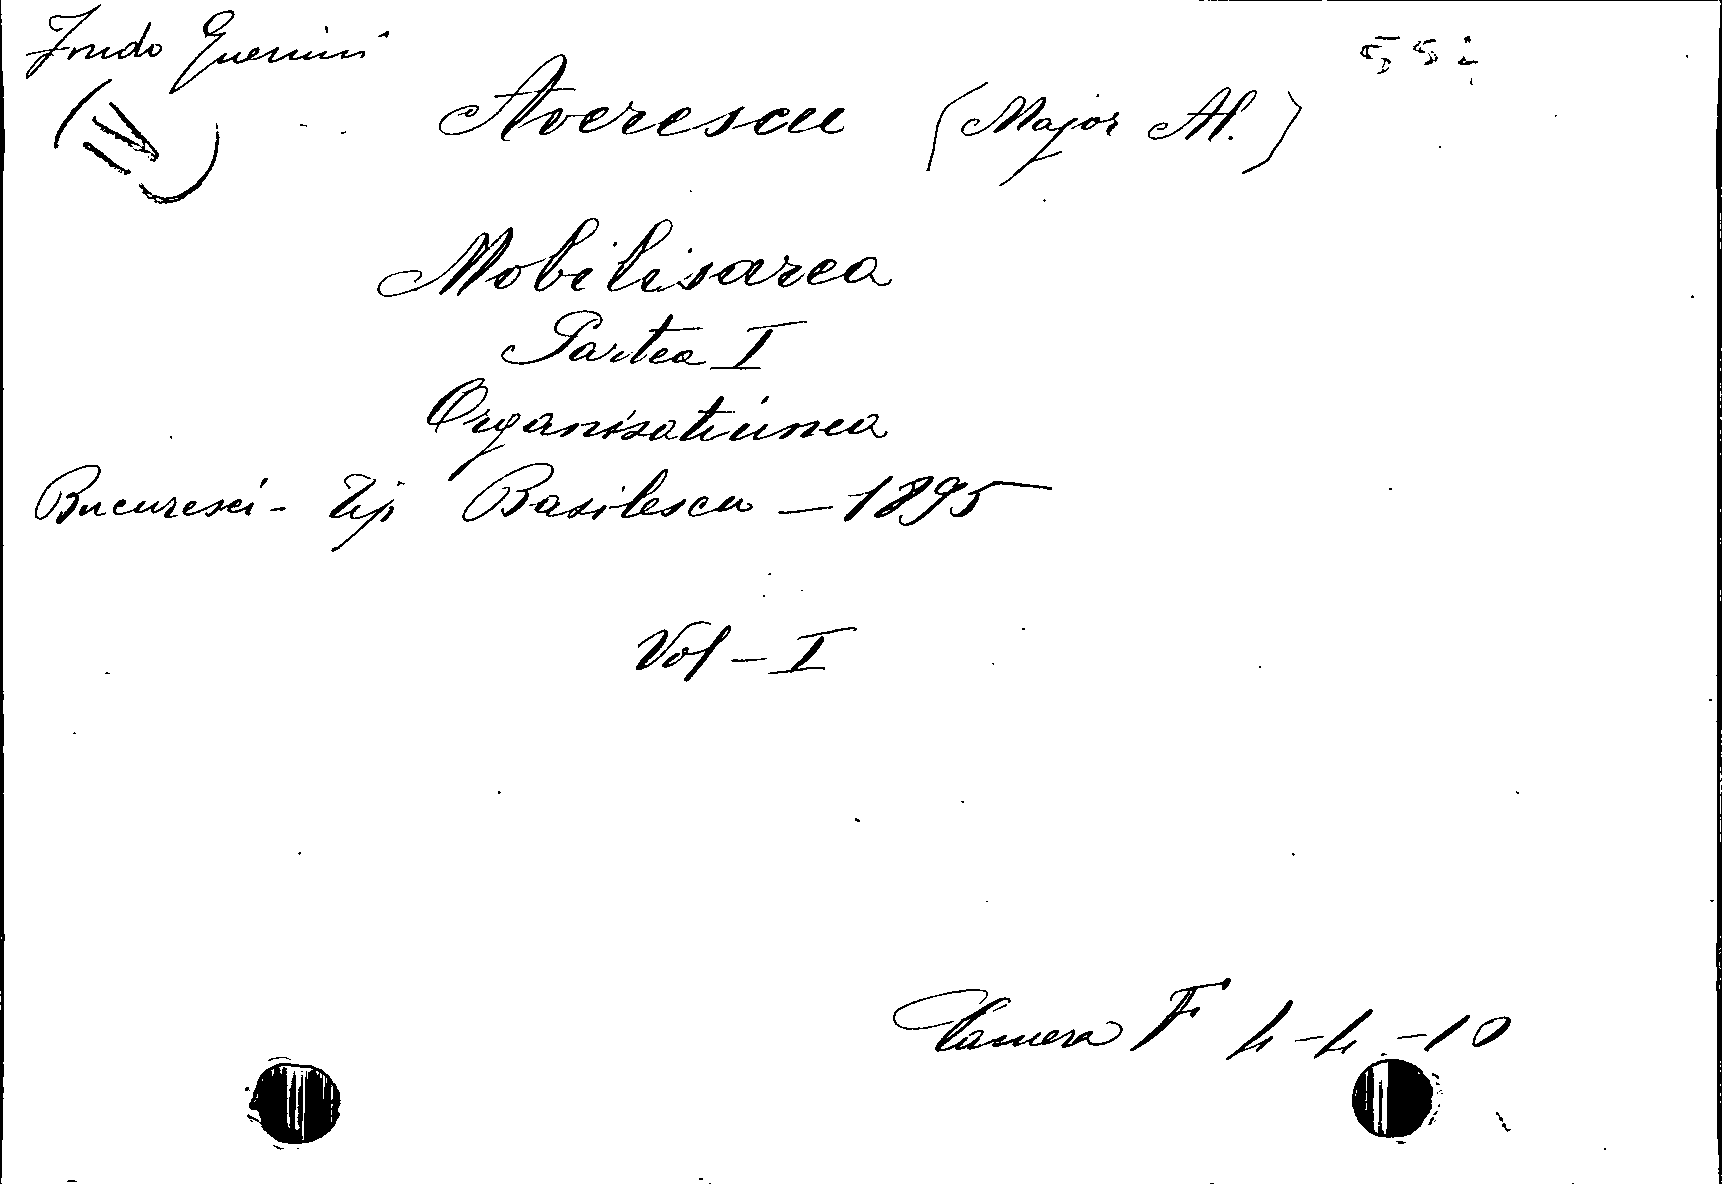 Fondo Guerrini
(IV)
Averescu (Major Al.)
Mobilisarea
Partea I
Organisatiunea
Bucuresci - Tip Basilescu - 1895
Vol - I
Camera F 4-4-10